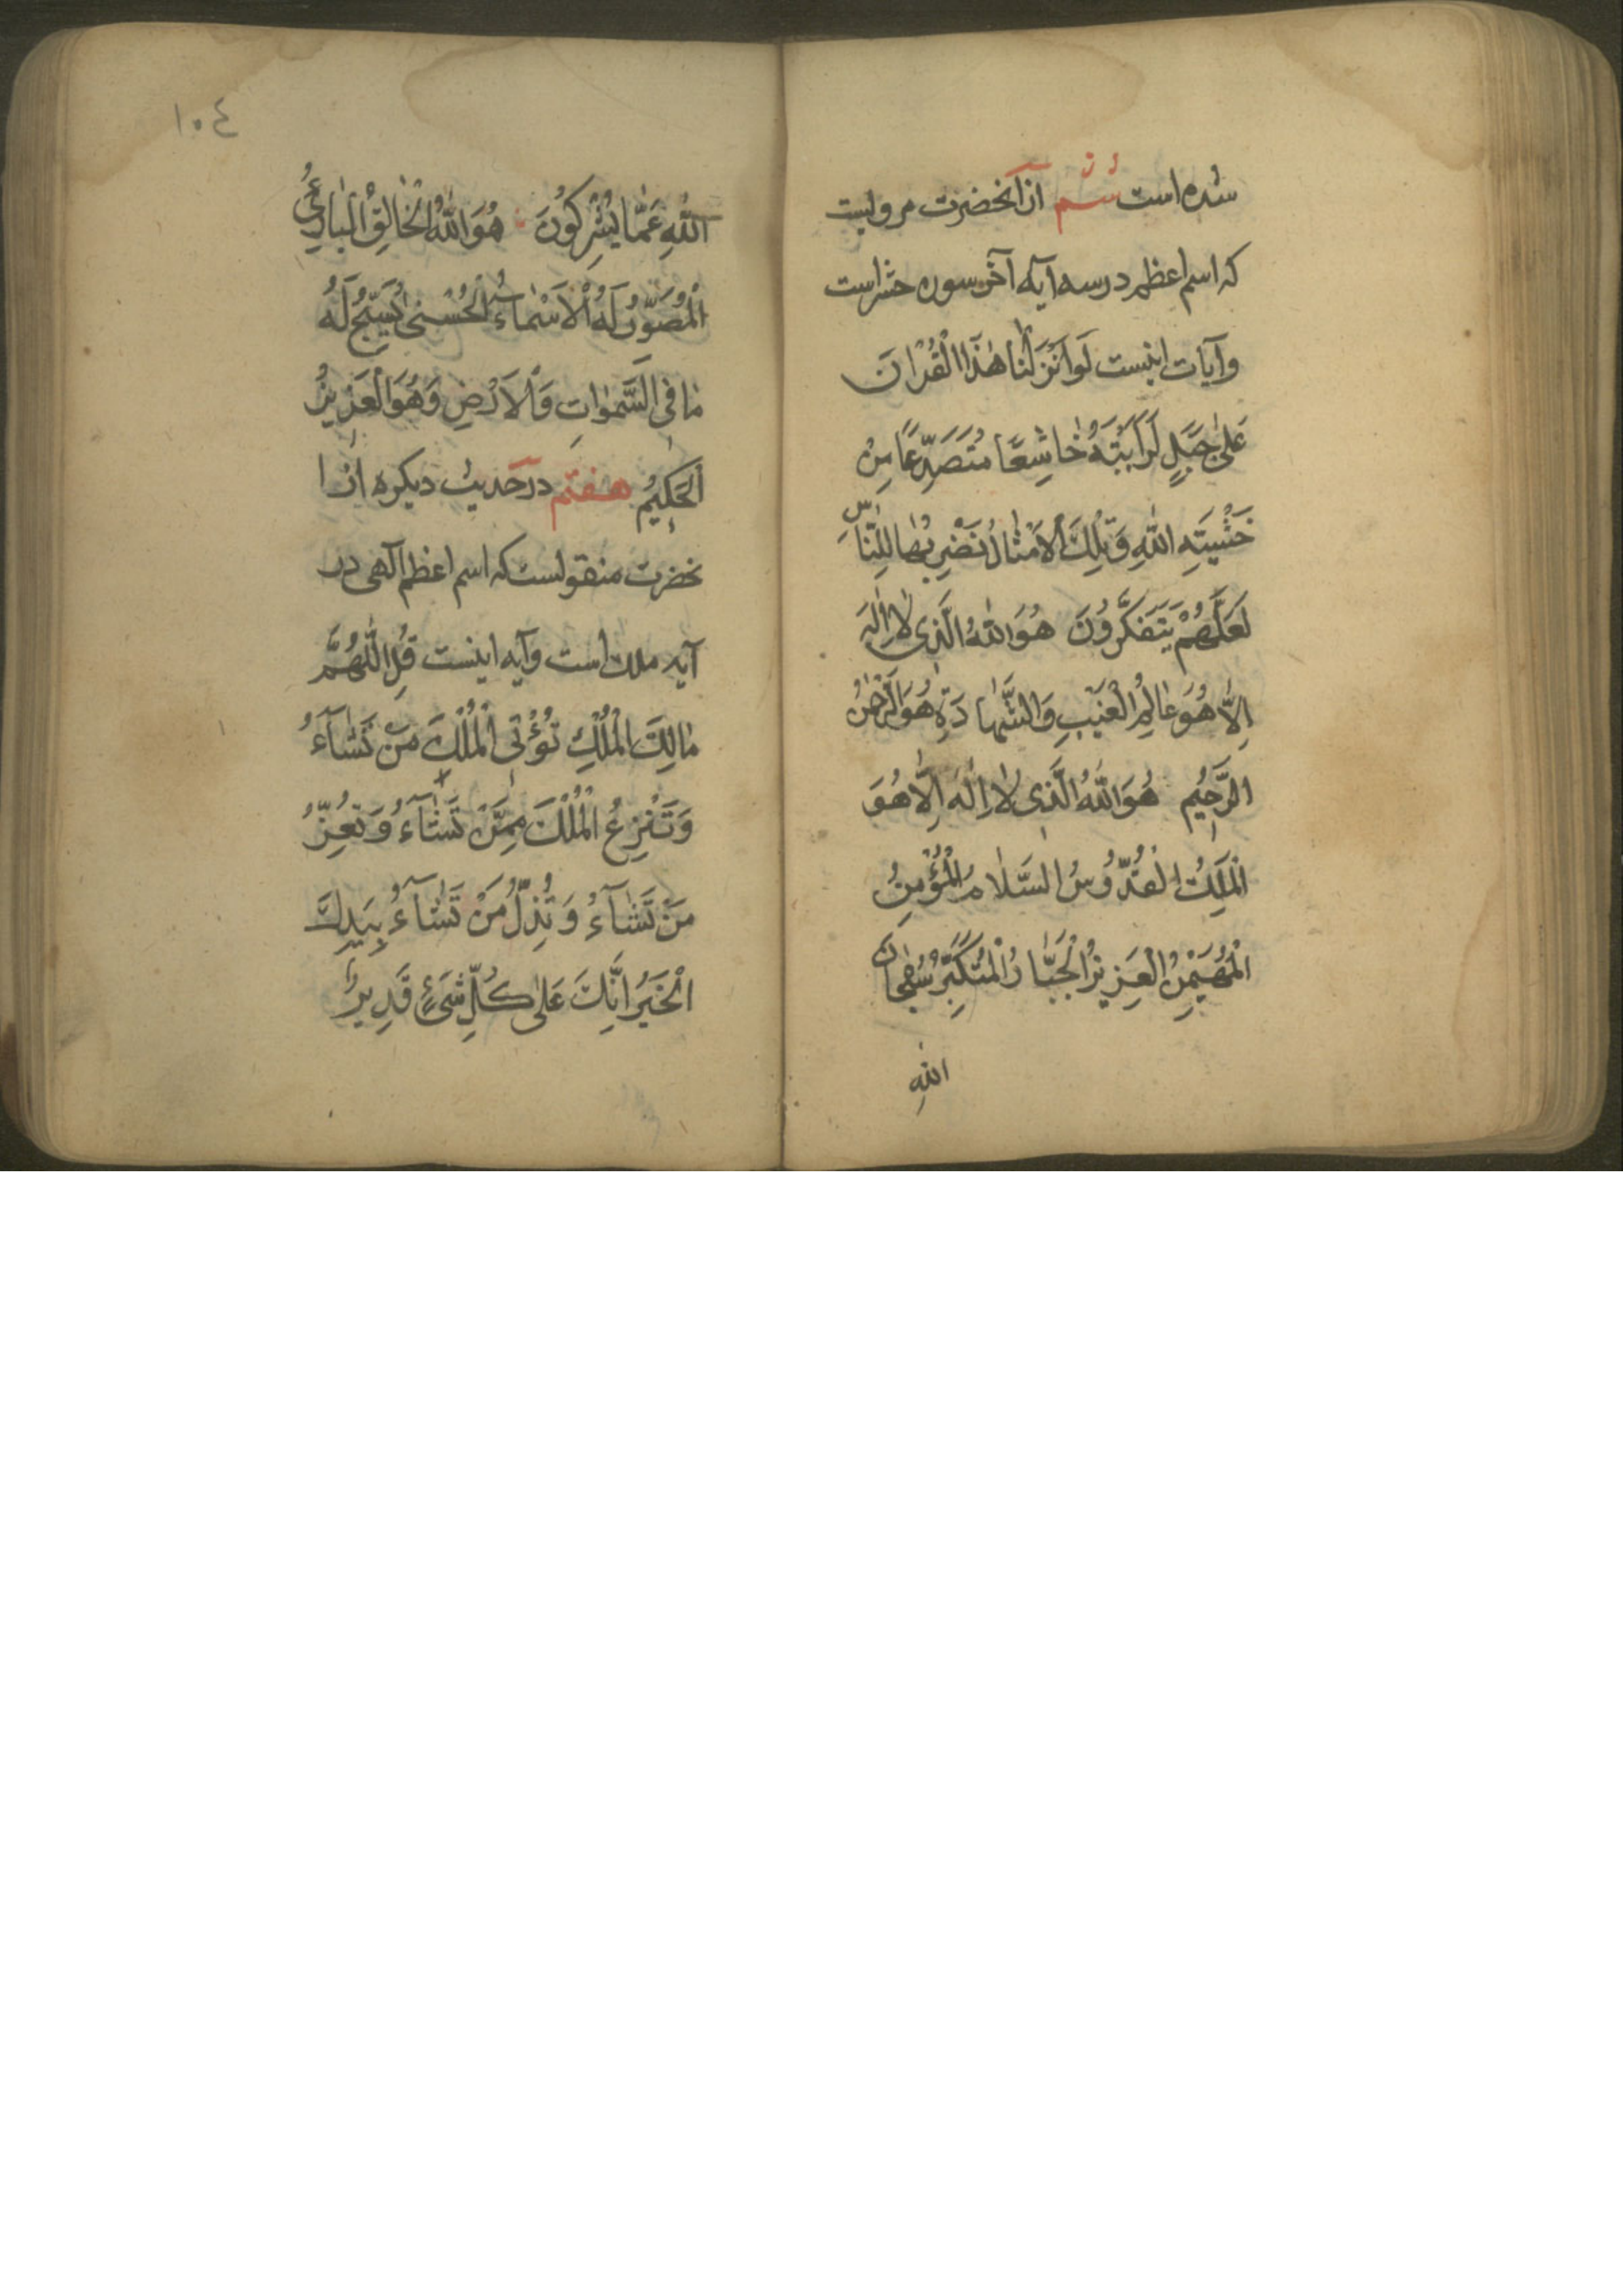 شده است ششم از آنحضرت مرویست
که اسم اعظم در سه آیه آخر سوره حشر است
و آیات اینست لَوْ اَنْزَلْنَا هٰذَا الْقُرْاٰنَ
عَلیٰ جَبَلٍ لَرَاَیْتَهُ خَاشِعًا مُتَصَدِّعًا مِنْ
خَشْیَتِهِ اللّٰهِ وَتِلْكَ الْاَمْثَالُ نَضْرِبُهَا لِلنَّاسِ
لَعَلَّهُمْ یَتَفَکَّرُونَ هُوَ اللّٰهُ الَّذِی لَا اِلٰهَ
اِلَّا هُوَ عَالِمُ الْغَیْبِ وَالشَّهَادَةِ هُوَ الرَّحْمٰنُ
الرَّحِیُم هُوَ اللّٰهُ الَّذِی لَا اِلٰهَ اِلَّا هُوَ
الْمَلِكُ الْقُدُّوسُ السَّلَامُ الْمُؤْمِنُ
الْمُهَیْمِنُ الْعَزِیزُ الْجَبَّارُ الْمُتَکَبِّرُ سُبْحَانَ
اللّٰهِ
١٠٤
اللّٰهِ عَمَّا یُشْرِکُونَ هُوَ اللّٰهُ الْخَالِقُ الْبَارِئُ
الْمُصَوِّرُ لَهُ الْاَسْمَاءُ الْحُسْنیٰ یُسَبِّحُ لَهُ
مَا فِی السَّمٰوَاتِ وَالْاَرْضِ وَهُوَ الْعَزِیزُ
الْحَکِیُم هفتم در حدیث دیکره از ا
نحضرت منقولست که اسم اعظم آلهی در
آیه ملك است و آیه اینست قُلِ اللّٰهُمَّ
مَالِكَ الْمُلْكِ تُؤْتِی الْمُلْكَ مَنْ تَشَآءُ
وَتَنْزِعُ الْمُلْكَ مِمَّنْ تَشَآءُ وَتُعِزُّ
مَنْ تَشَآءُ وَتُذِلُّ مَنْ تَشَآءُ بِیَدِكَ
الْخَیْرُ اِنَّكَ عَلیٰ کُلِّ شَیْءٍ قَدِیرٌ